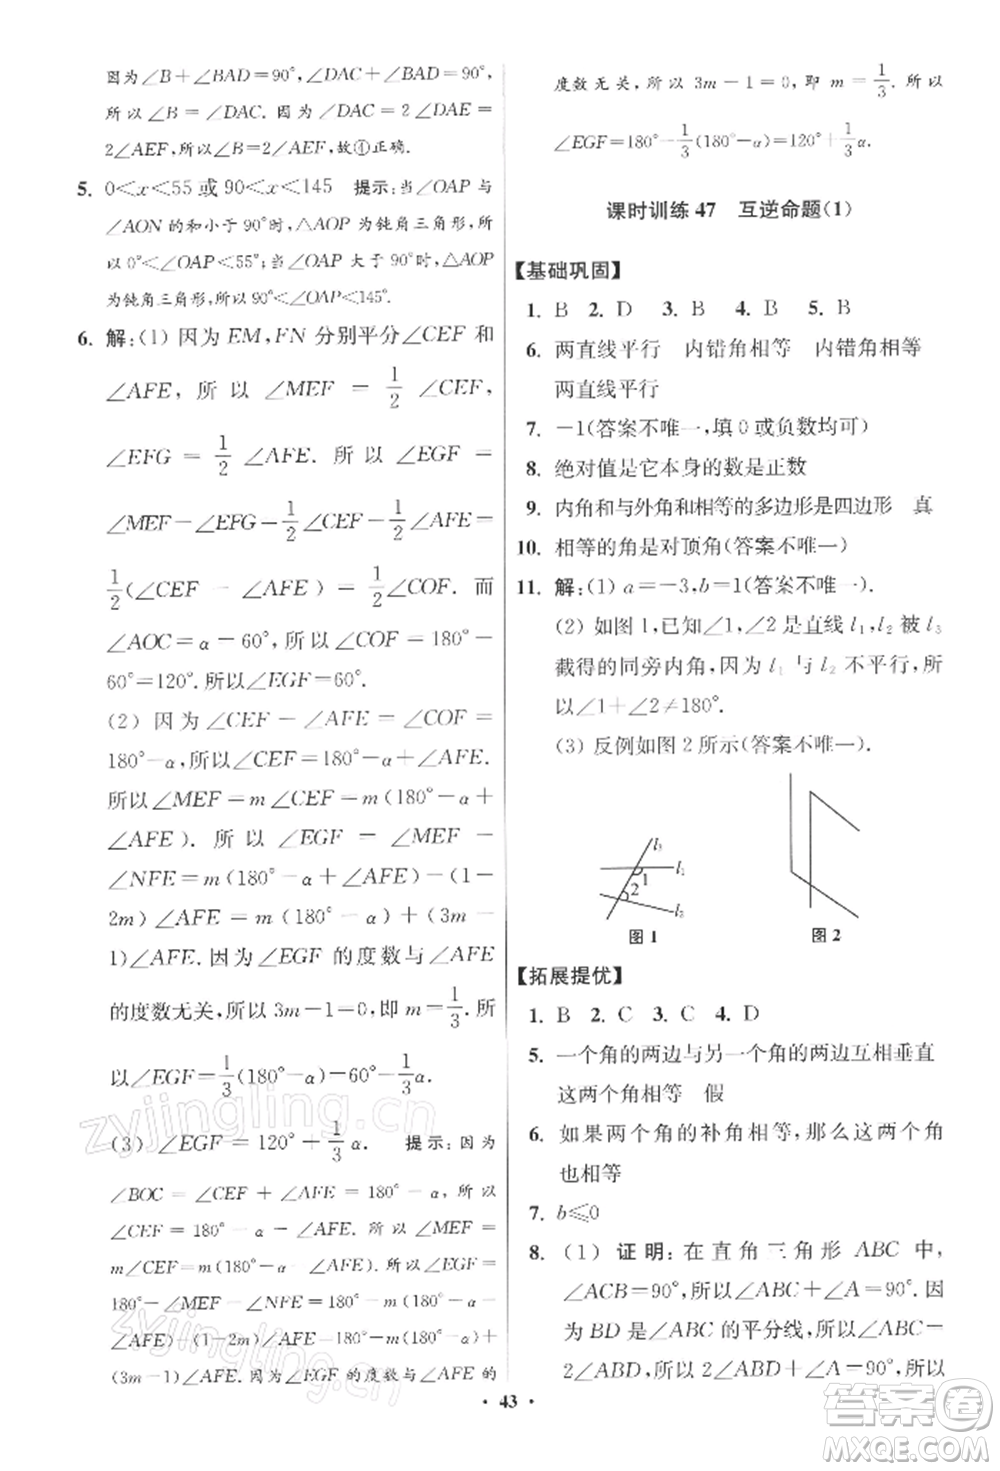 因为∠B+∠BAD=90°,∠DAC+∠BAD=90°,
所以∠B=∠DAC. 因为∠DAC=2∠DAE=
2∠AEF,所以∠B=2∠AEF,故④正确.
5. 0<x<55 或 90<x<145 提示:当∠OAP 与
∠AON 的和小于 90°时,△AOP 为钝角三角形,所
以 0°<∠OAP<55°;当∠OAP>90°时,△AOP
为钝角三角形,所以 90°<∠OAP<145°.
6. 解:(1) 因为 EM,FN 分别平分∠CEF 和
∠AFE, 所以 ∠MEF = 1/2 ∠CEF,
∠EFG = 1/2 ∠AFE. 所以 ∠EGF =
∠MEF-∠EFG=1/2∠CEF-1/2∠AFE=
1/2(∠CEF - ∠AFE) = 1/2∠COF. 而
∠AOC=α=60°,所以∠COF=180°-
60°=120°. 所以∠EGF=60°.
(2) 因为∠CEF-∠AFE=∠COF=
180°-α,所以∠CEF=180°-α+∠AFE.
所以∠MEF=m∠CEF=m(180°-α+
∠AFE). 所以 ∠EGF = ∠MEF -
∠NFE=m(180°-α+∠AFE)-(1-
2m)∠AFE=m(180°-α)+(3m-
1)∠AFE. 因为∠EGF 的度数与∠AFE
的度数无关,所以 3m-1=0,即 m=1/3. 所
以∠EGF=1/3(180°-α)=60°-1/3α.
(3) ∠EGF=120°+1/3α. 提示:因为
∠BOC=∠CEF+∠AFE=180°-α,所以
∠CEF=180°-α-∠AFE. 所以∠MEF=
m∠CEF=m(180°-α-∠AFE). 所以∠EGF=
180°-∠MEF-∠NFE=180°-m(180°-α-
∠AFE)-(1-2m)∠AFE=180°-m(180°-α)+
(3m-1)∠AFE. 因为∠EGF 的度数与∠AFE 的
度数无关,所以 3m-1=0,即 m=1/3. 所以
∠EGF=180°-1/3(180°-α)=120°+1/3α.
课时训练 47 互逆命题(1)
【基础巩固】
1. B 2. D 3. B 4. B 5. B
6. 两直线平行 内错角相等 内错角相等
两直线平行
7. -1(答案不唯一,填 0 或负数均可)
8. 绝对值是它本身的数是正数
9. 内角和与外角和相等的多边形是四边形 真
10. 相等的角是对顶角(答案不唯一)
11. 解:(1) a=-3,b=1(答案不唯一).
(2) 如图 1,已知∠1,∠2 是直线 l₁,l₂ 被 l₃
截得的同旁内角,因为 l₁与l₂ 不平行,所
以∠1+∠2≠180°.
(3) 反例如图 2 所示(答案不唯一).
l₃
1
l₁
2
l₂
图 1
图 2
【拓展提优】
1. B 2. C 3. C 4. D
5. 一个角的两边与另一个角的两边互相垂直
这两个角相等 假
6. 如果两个角的补角相等,那么这两个角
也相等
7. b≤0
8. (1) 证明:在直角三角形 ABC 中,
∠ACB=90°,所以∠ABC+∠A=90°. 因
为 BD 是∠ABC 的平分线,所以∠ABC=
2∠ABD,所以 2∠ABD+∠A=90°,所以
· 43 ·
zyjingling.cn
zyjingling.cn
答案圈
MXQE.COM